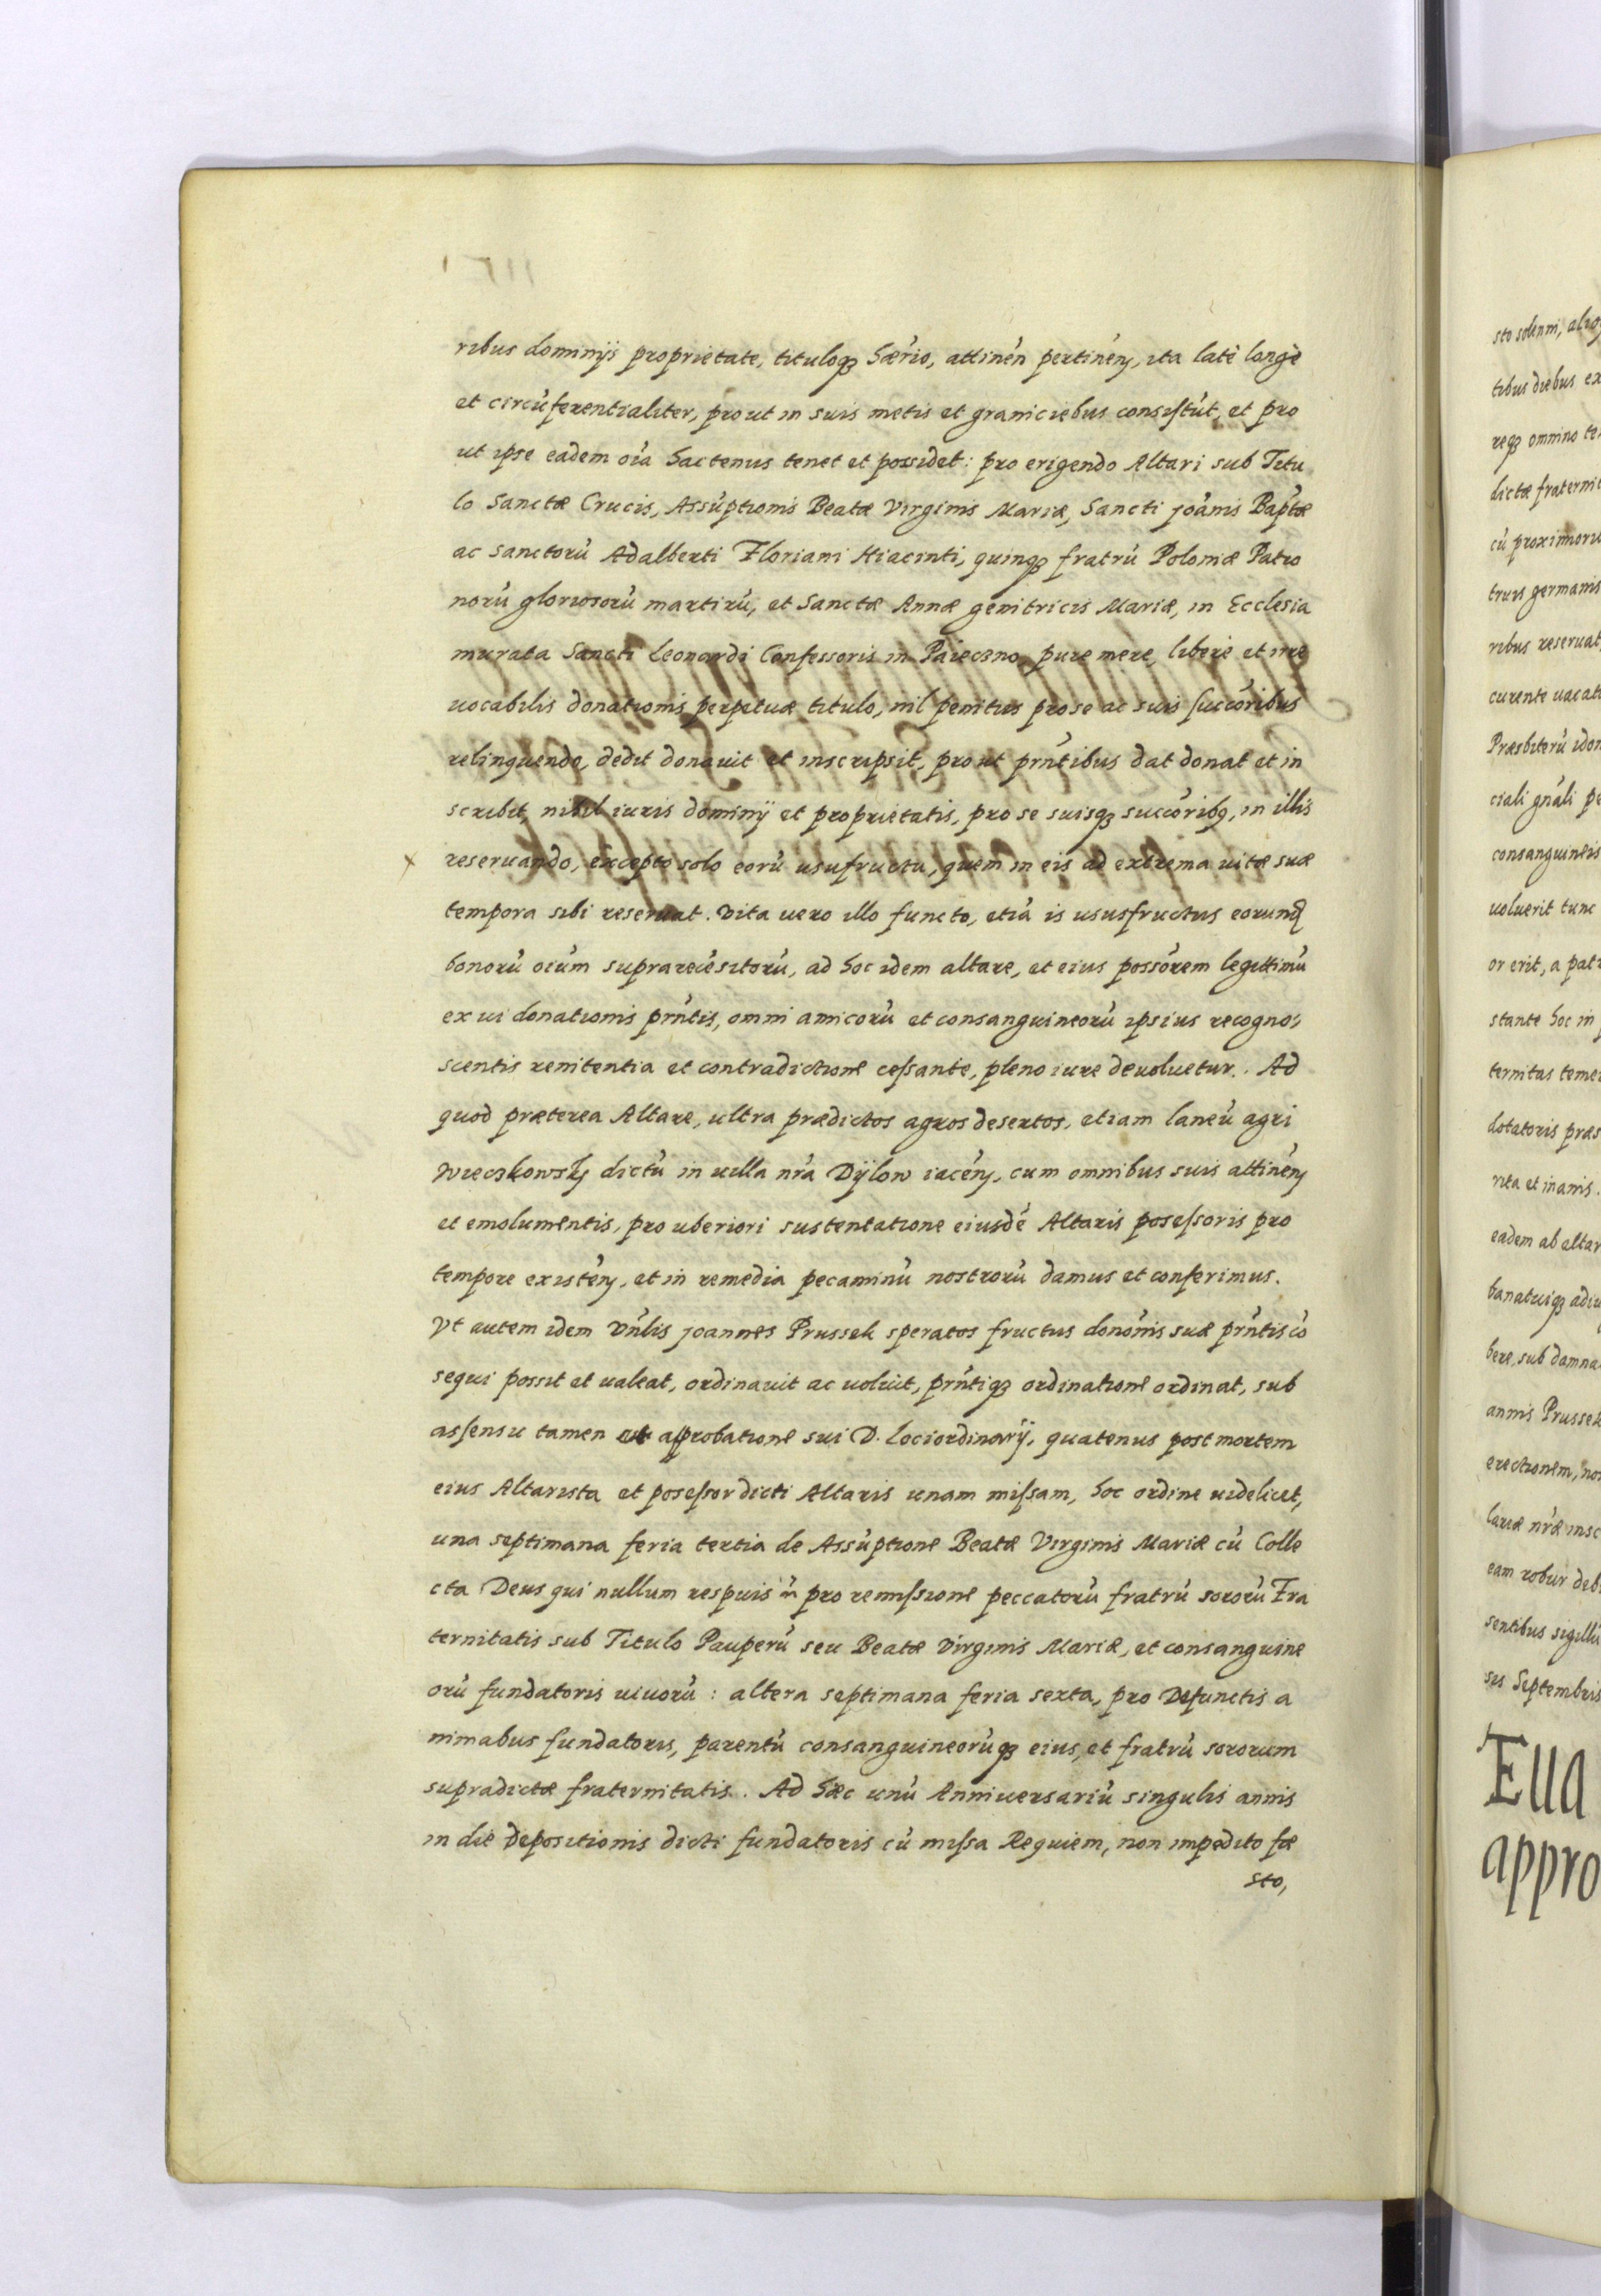 ribus dominijs proprietate, tituloq₃ hærio, attinen̄ pertinen̄, ita latè longè
et circūferentialiter, prout in suis metis et graniciebus consistūt, et pro
ut ipse eadem oīa hactenus tenet et possidet: pro erigendo Altari sub Titu
lo Sanctæ Crucis, Assūptionis Beatæ Virginis Mariæ, Sancti joānis Bapt̄æ
ac Sanctorū Adalberti Floriani Hiacinti, quinq₃ fratrū Poloniæ Patro
norū gloriosorū martirū, et Sanctæ Annæ genitricis Mariæ, in Ecclesia
murata Sancti Leonardi Confessoris in Paieczno, pure mere, libere et irre
uocabilis donationis perpetuæ titulo, nil penitus pro se ac suis succōribus
relinquendo, dedit donauit et inscripsit, prout pr̄ntibus dat donat et in
scribit, nihil iuris dominij et proprietatis, pro se suisq₃ succōrib₉, in illis
reseruando, excepto solo eorū usufructu, quem in eis ad extrema uitæ suæ
tempora sibi reseruat. Vita uero illo functo, etiā is ususfructus eorund
bonorū oiūm suprarecēsitorū, ad hoc idem altare, et eius possōrem legittimū
ex ui donationis pr̄ntis, omni amicorū et consanguineorū ipsius recogno,
scentis renitentia et contradictione cessante, pleno iure deuoluetur. Ad
quod præterea Altare, ultra prædictos agros desertos, etiam laneū agri
Wieczkowsky dictū in uilla nr̄a Dÿlow iacen̄, cum omnibus suis attinen̄
et emolumentis, pro uberiori sustentatione eiusdē Altaris posessoris pro
tempore existen̄, et in remedia pecaminū nostrorū damus et conferimus.
Vt autem idem Vn̄lis joannes Prussek speratos fructus donōnis suæ pr̄ntis cō
sequi possit et ualeat, ordinauit ac uoluit, pr̄ntiq₃ ordinatione ordinat, sub
assensu tamen et approbatione sui D. Loci ordinarij, quatenus post mortem
eius Altarista et posessor dicti Altaris unam missam, hoc ordine uidelicet,
una septimana feria tertia de Assūptione Beatæ Virginis Mariæ cū Colle
cta Deus qui nullum respuis in̄ pro remissione peccatorū fratrū sororū Fra
ternitatis sub Titulo Pauperū seu Beatæ Virginis Mariæ, et consanguine
orū fundatoris uiuorū: altera septimana feria sexta, pro Defunctis a
nimabus fundatoris, parentū consanguineorūq₃ eius, et fratrū sororum
supradictæ fraternitatis. Ad hæc unū Anniuersariū singulis annis
in die Depositionis dicti fundatoris cū missa Requiem, non impedito fæ
sto,
sto solenni, alio
tibus diebus ex
req₃ omnino te
dictæ fraternit
cū proximioru
truis germanis
ribus reseruat
curente uacat
Præsbiterū idon
ciali gn̄ali pe
consanguineis
uoluerit tunc
or erit, a patr
stante hoc in p
ternitas temer
dotatoris præs
rita et inanis.
eadem ab altar
banatuiq₃ adiu
bere, sub damna
annis Prussek
erectionem, no
lariæ nr̄æ insc
eam robur deb
sentibus sigillū
sis Septembris
Ella
appro